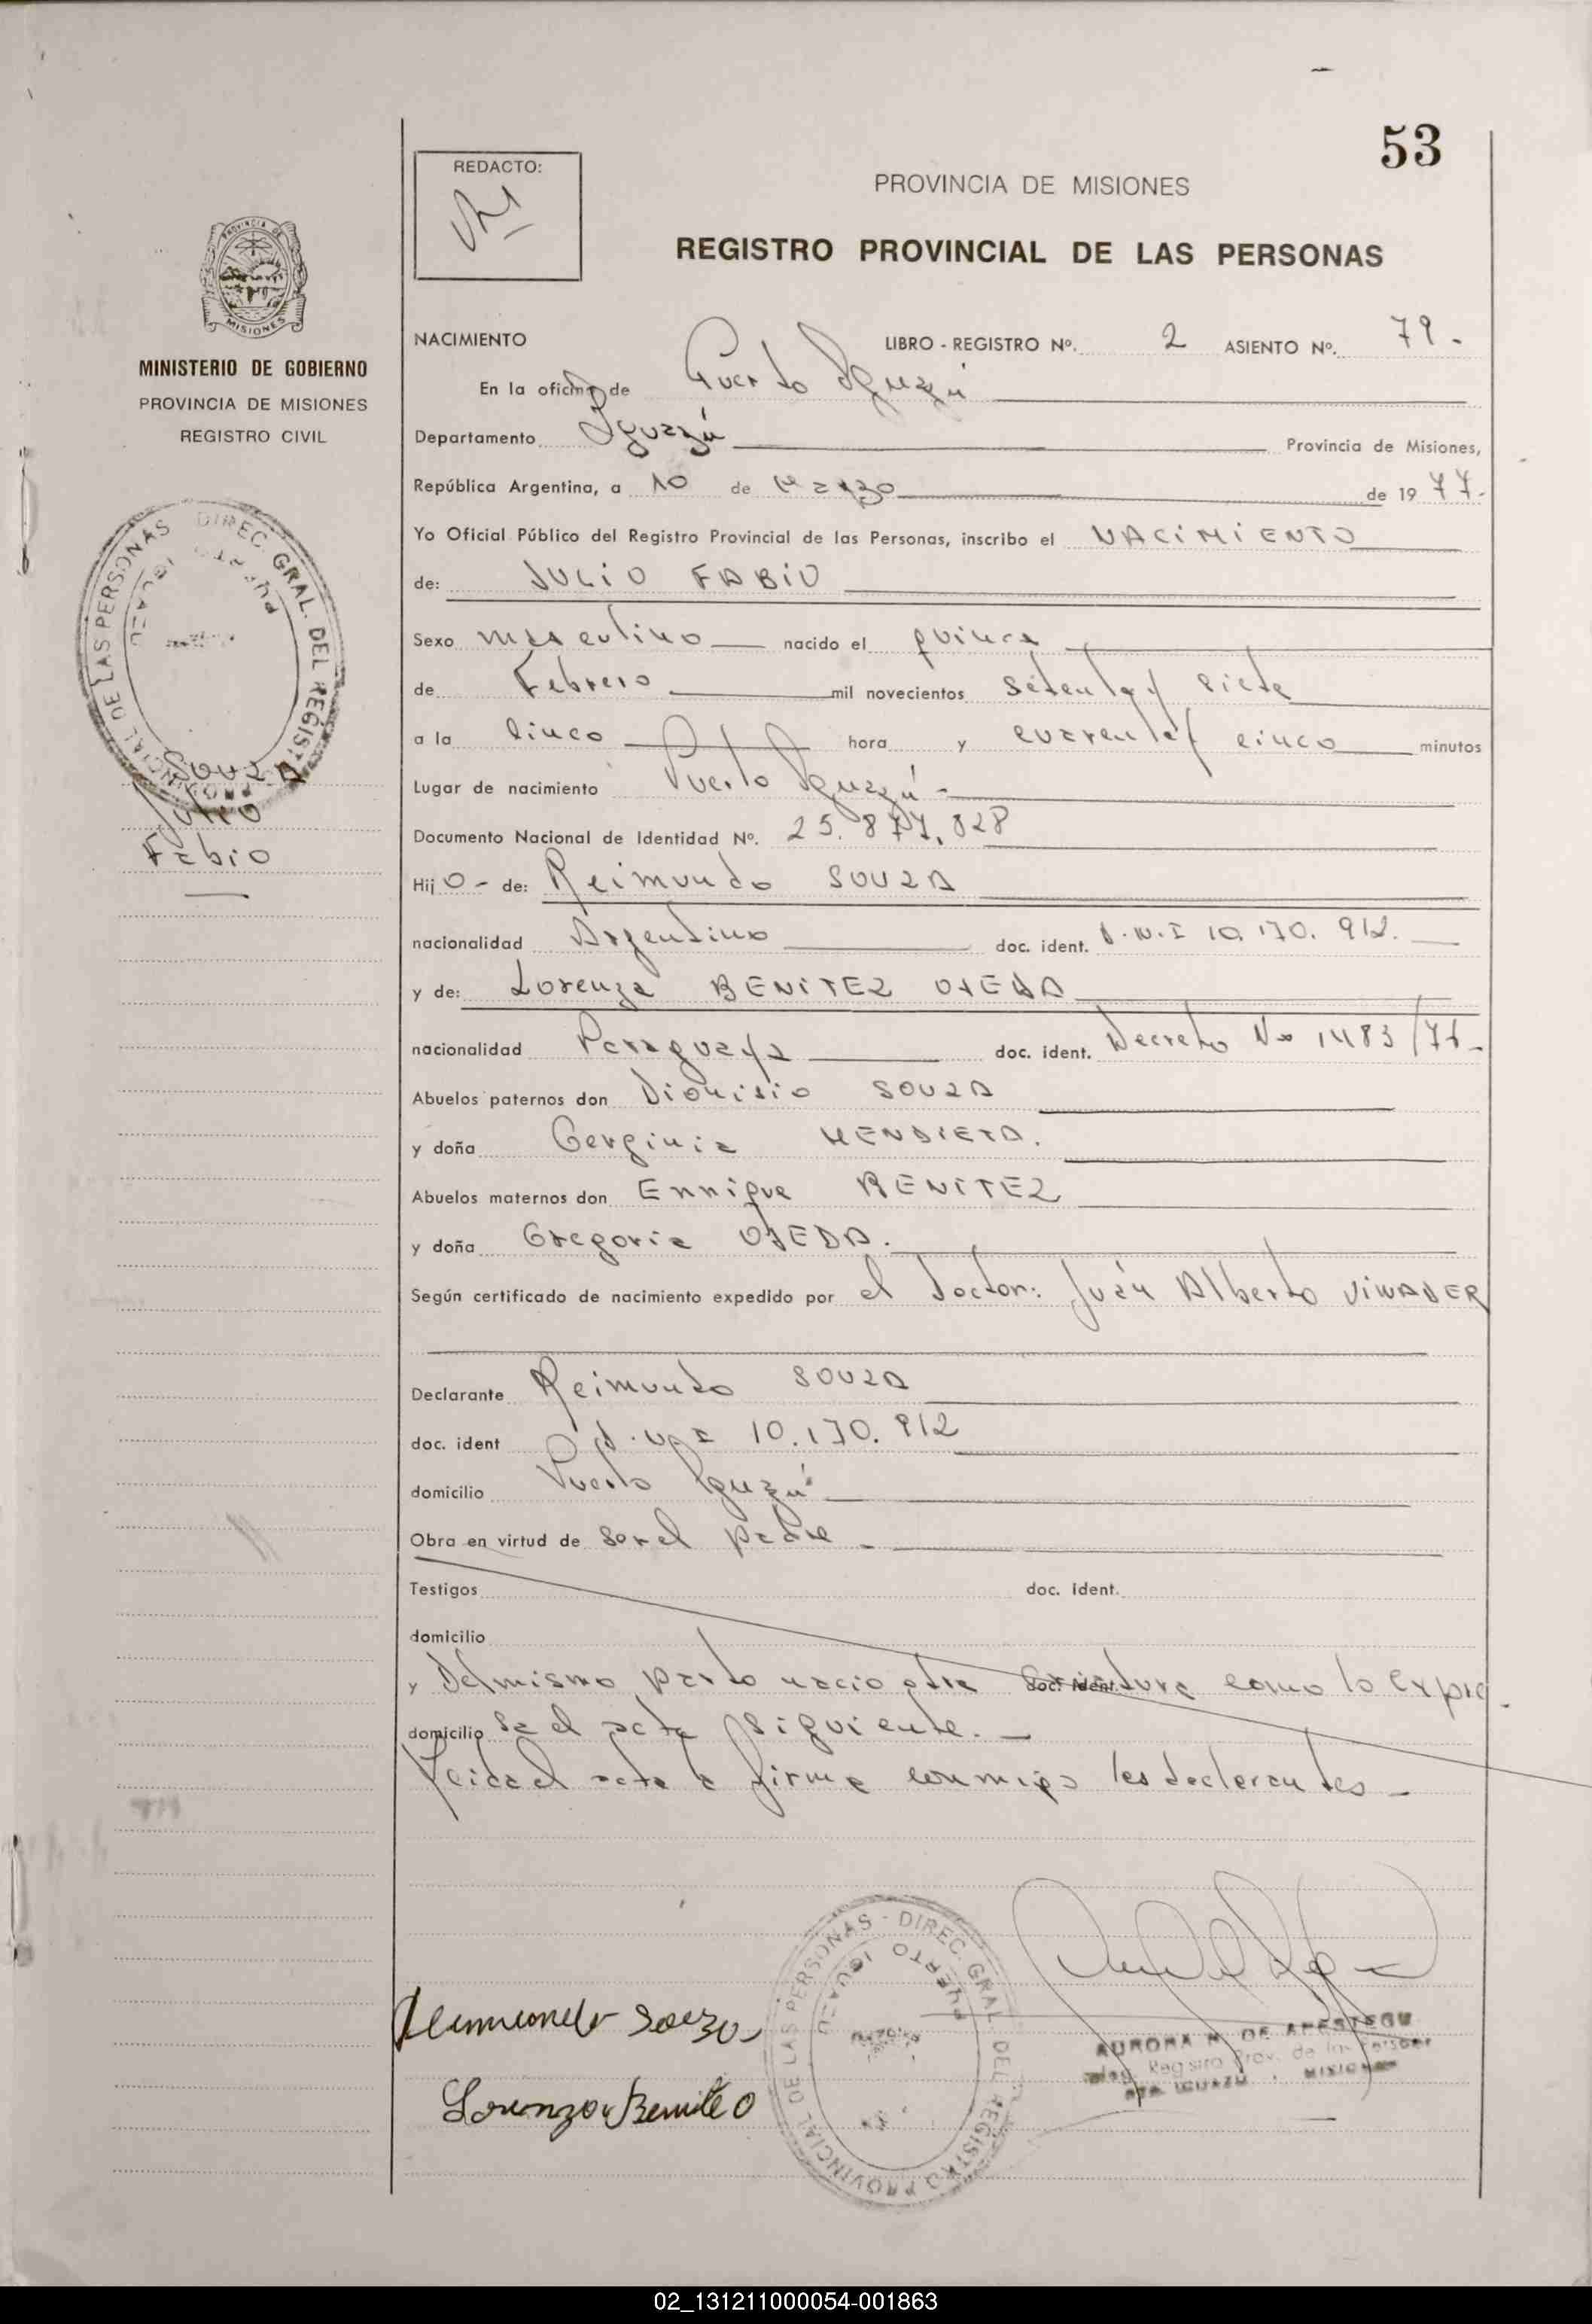 53
REDACTO:
PROVINCIA DE MISIONES
REGISTRO PROVINCIAL DE LAS PERSONAS
MINISTERIO DE GOBIERNO
PROVINCIA DE MISIONES
REGISTRO CIVIL
NACIMIENTO LIBRO - REGISTRO Nº. 2 ASIENTO Nº. 79.-
En la oficina de Puerto Iguazú
Departamento Iguazú Provincia de Misiones,
República Argentina, a 10 de Marzo de 1977.-
Yo Oficial Público del Registro Provincial de las Personas, inscribo el NACIMIENTO
de: JULIO FABIO
Sexo masculino nacido el quince
de Febrero mil novecientos setenta y siete
a la cinco hora y cuarenta y cinco minutos
Lugar de nacimiento Puerto Iguazú-
Documento Nacional de Identidad Nº. 25.877.828
Hijo- de: Reimundo SOUZA
nacionalidad Argentino doc. ident. D.N.I 10.170.912.
y de: Lorenza BENITEZ OJEDA
nacionalidad Paraguaya doc. ident. Decreto No 1483/76-
Abuelos paternos don Dionisio SOUZA
y doña MENDIETA.
Abuelos maternos don Enrique BENITEZ
y doña Gregoria OJEDA.
Según certificado de nacimiento expedido por el Doctor: Juán Alberto VINADER
Declarante Reimundo SOUZA
doc. ident D.N.I 10.170.912
domicilio Puerto Iguazú-
Obra en virtud de ser el padre.-
Testigos doc. ident.
domicilio
y Del mismo parto nacio otra criatura como lo expre-
doc. ident.
domicilio sa el acta siguiente.-
Leida el acta la firma conmigo los declarantes-
SOUZA
Julio
Fabio
DIREC. GRAL. DEL REGISTRO PROVINCIAL DE LAS PERSONAS
PUERTO IGUAZU
Lorenza Benite
DIREC. GRAL. DEL REGISTRO PROVINCIAL DE LAS PERSONAS -
PUERTO IGUAZU
AURORA DE
Registro Prov. de las Person
PTO IGUAZU - MISIONES
02_131211000054-001863